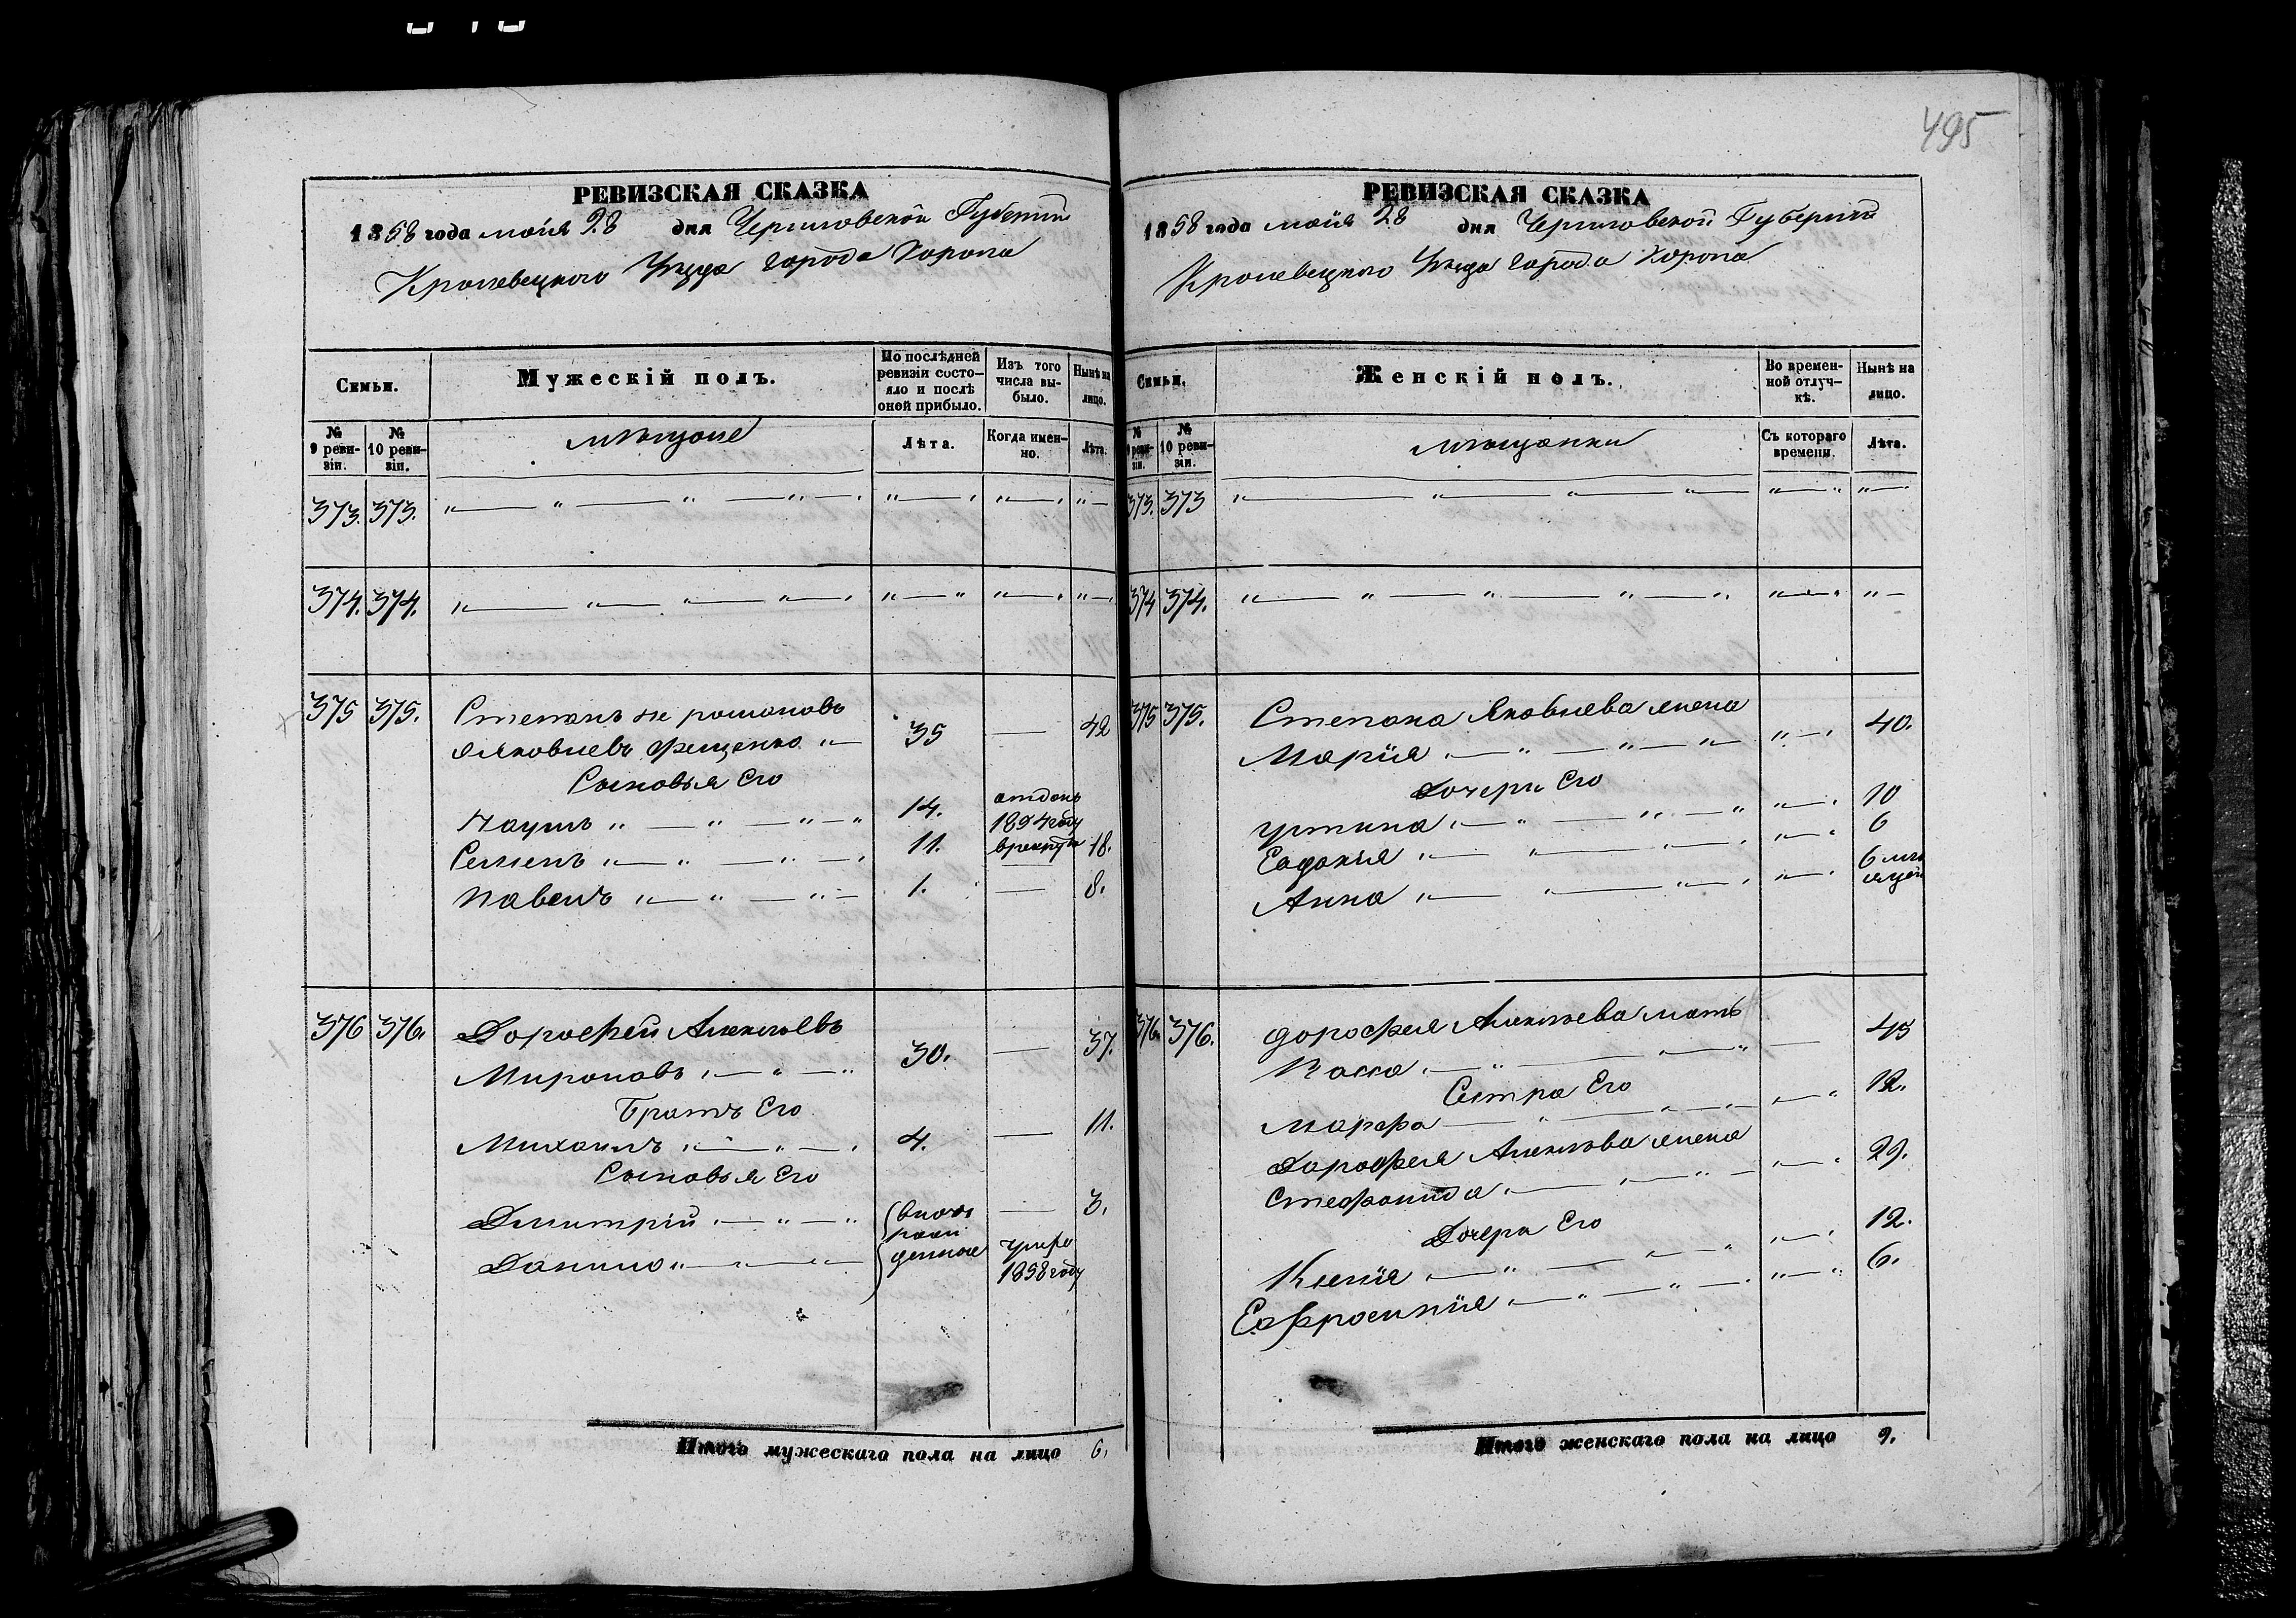 495
РЕВИЗСКАЯ СКАЗКА
1858 года мая 28 дня Черниговской Губернии
Кролевецкого Уезда города Коропа
Семьи.
Мужескій полъ.
По послѣдней ревизіи состо-
яло и послѣ
оной прибыло.
Изъ того
числа вы-
было.
Нынѣ на
лицо.
№ 9 реви-
зіи.
№ 10 реви-
зіи.
мѣщане
Лѣта.
Когда имен-
но.
Лѣта.
373. 373. „ — „ — „ — „ — „
374. 374. „ — „ — „ — „ — „
375 375. Степанъ не романовъ
а Яковлевъ Фещенко „ — 35 — 42
Сыновья Его
Наумъ „ — „ — „ — „ 14. отданъ 1854 году в рекруты
Семенъ „ — „ — „ — 11. — 18.
Павелъ „ — „ — „ — 1. — 8.
376 376. Дорофей Алексѣевъ
Мироновъ „ — „ — „ 30. — 37.
Братъ Его
Михаилъ „ — „ — 4. — 11.
Сыновья Его
Дмитрій „ — „ — „ вновь — 3.
рожденные
Данило „ — „ — „ — умре
1858 году
Итого мужескаго пола на лицо 6.
РЕВИЗСКАЯ СКАЗКА
1858 года мая 28 дня Черниговской Губернии
Кролевецкого Уезда города Коропа
Семьи.
Женскій полъ.
Во времен-
ной отлуч-
кѣ.
Нынѣ на
лицо.
№ 9 реви-
зіи.
№ 10 реви-
зіи.
мѣщанки
Съ котораго
времени.
Лѣта.
373. 373 „ — „ — „ — „ —
374 374. „ — „ — „ — „ — „
375 375. Степана Яковлева жена
Марія „ — „ — „ — „ 40.
Дочери Его
Устина „ — „ — „ — „ 10
Евдокія „ — „ — „ — 6
Анна „ — „ — „ — 6 мѣсяцей
376. 376. Дорофея Алексѣева мать
Васса „ — „ — „ — „ 45
Сестра Его
Марфа — „ — „ — „ 12.
Дорофея Алексѣева жена
Стефанида „ — „ — „ — 29.
Дочери Его
Ксенія „ — „ — „ — „ 12.
Евфросинія „ — „ — „ — 6.
Итого женскаго пола на лицо 9.